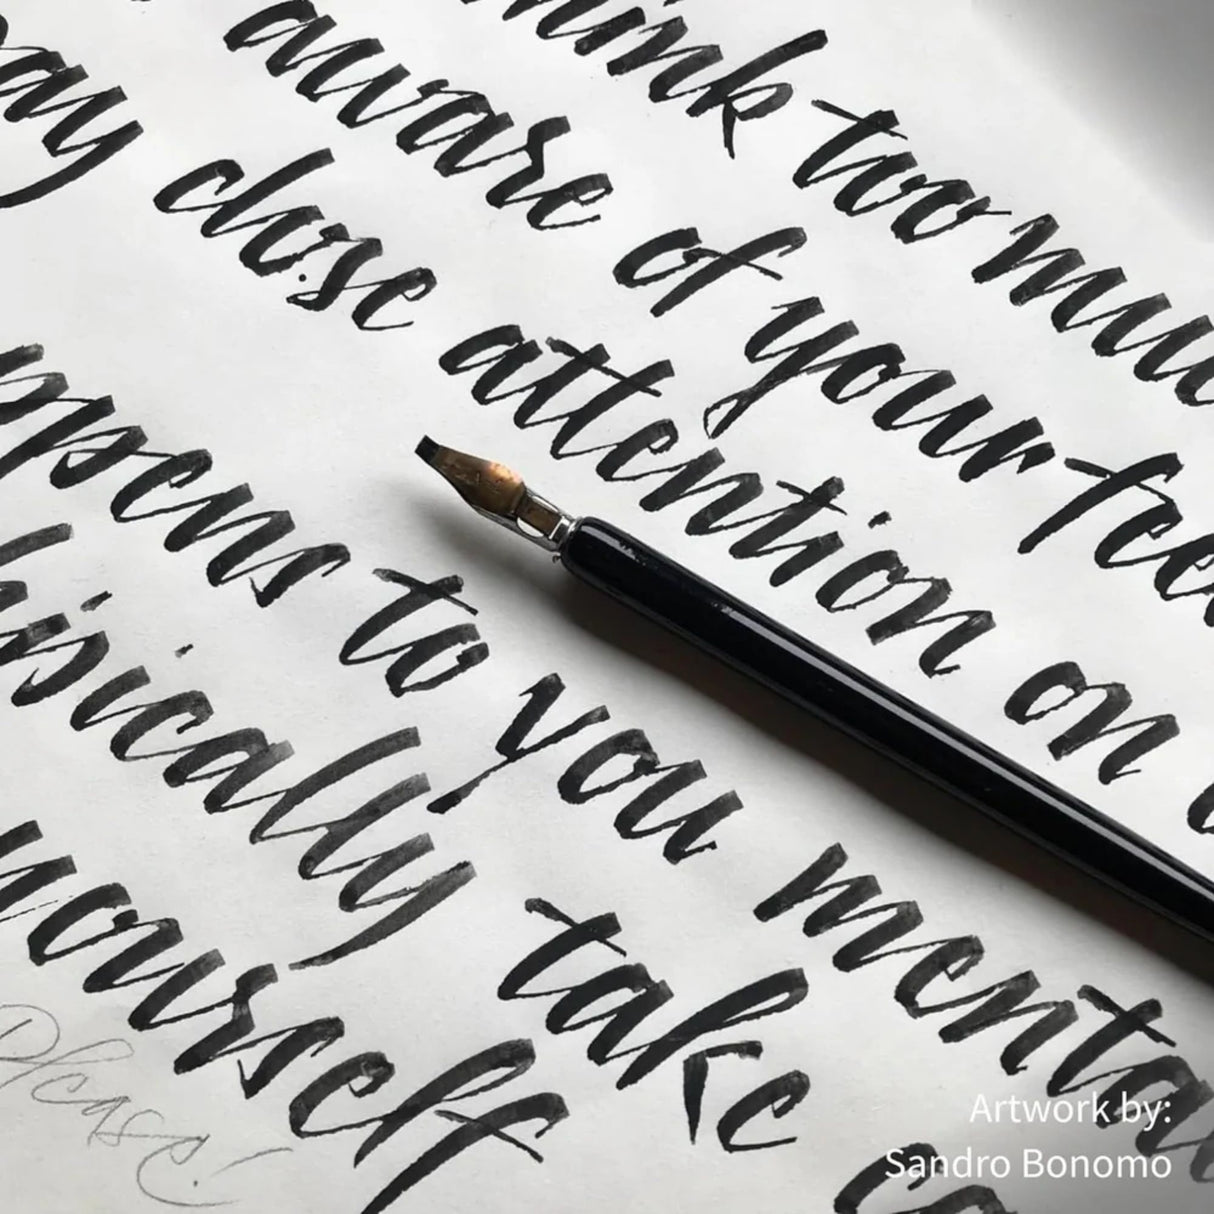 hink too mu
aware of your fee
ay close attention on
ppens to you menta
hisically take ca
ourself
Please!
Artwork by:
Sandro Bonomo